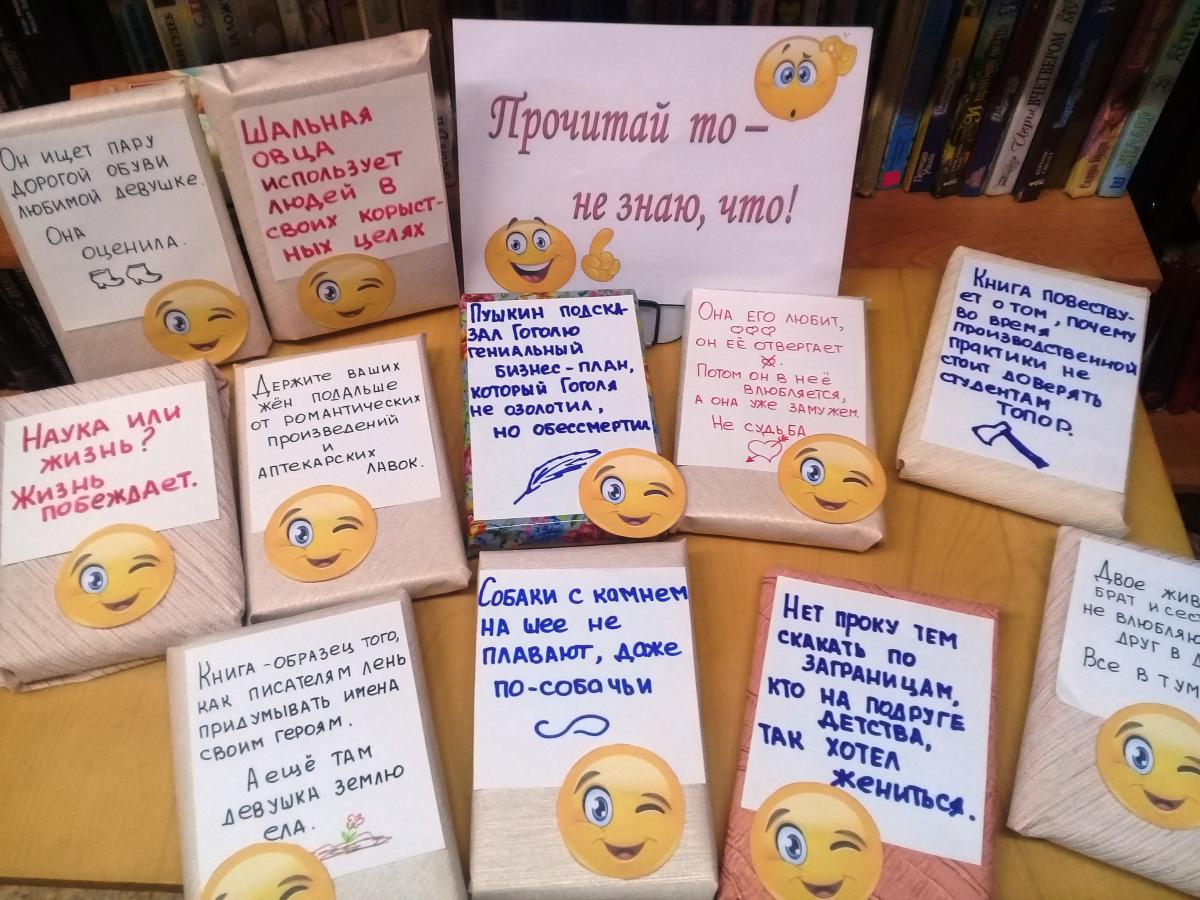 Прочитай то –
не знаю, что!
Он ищет пару
дорогой обуви
любимой девушке.
Она
оценила.
Шальная
овца
использует
людей в
своих корыст-
ных целях
Пушкин подска-
зал Гоголю
гениальный
бизнес-план,
который Гоголя
не озолотил,
но обессмертил
Она его любит,
он её отвергает
Потом он в неё
влюбляется,
а она уже замужем.
Не судьба
Книга повеству-
ет о том, почему
во время
производственной
практики не
стоит доверять
студентам
топор.
Наука или
жизнь?
Жизнь
побеждает.
Держите ваших
жён подальше
от романтических
произведений
и
аптекарских
лавок.
Книга – образец того,
как писателям лень
придумывать имена
своим героям.
А ещё там
девушка землю
ела.
Собаки с камнем
на шее не
плавают, даже
по-собачьи
Нет проку тем
скакать по
заграницам,
кто на подруге
детства,
так хотел
жениться.
Двое жив
брат и сест
не влюбляю
друг в д
Все в тум
Игры вчетвером